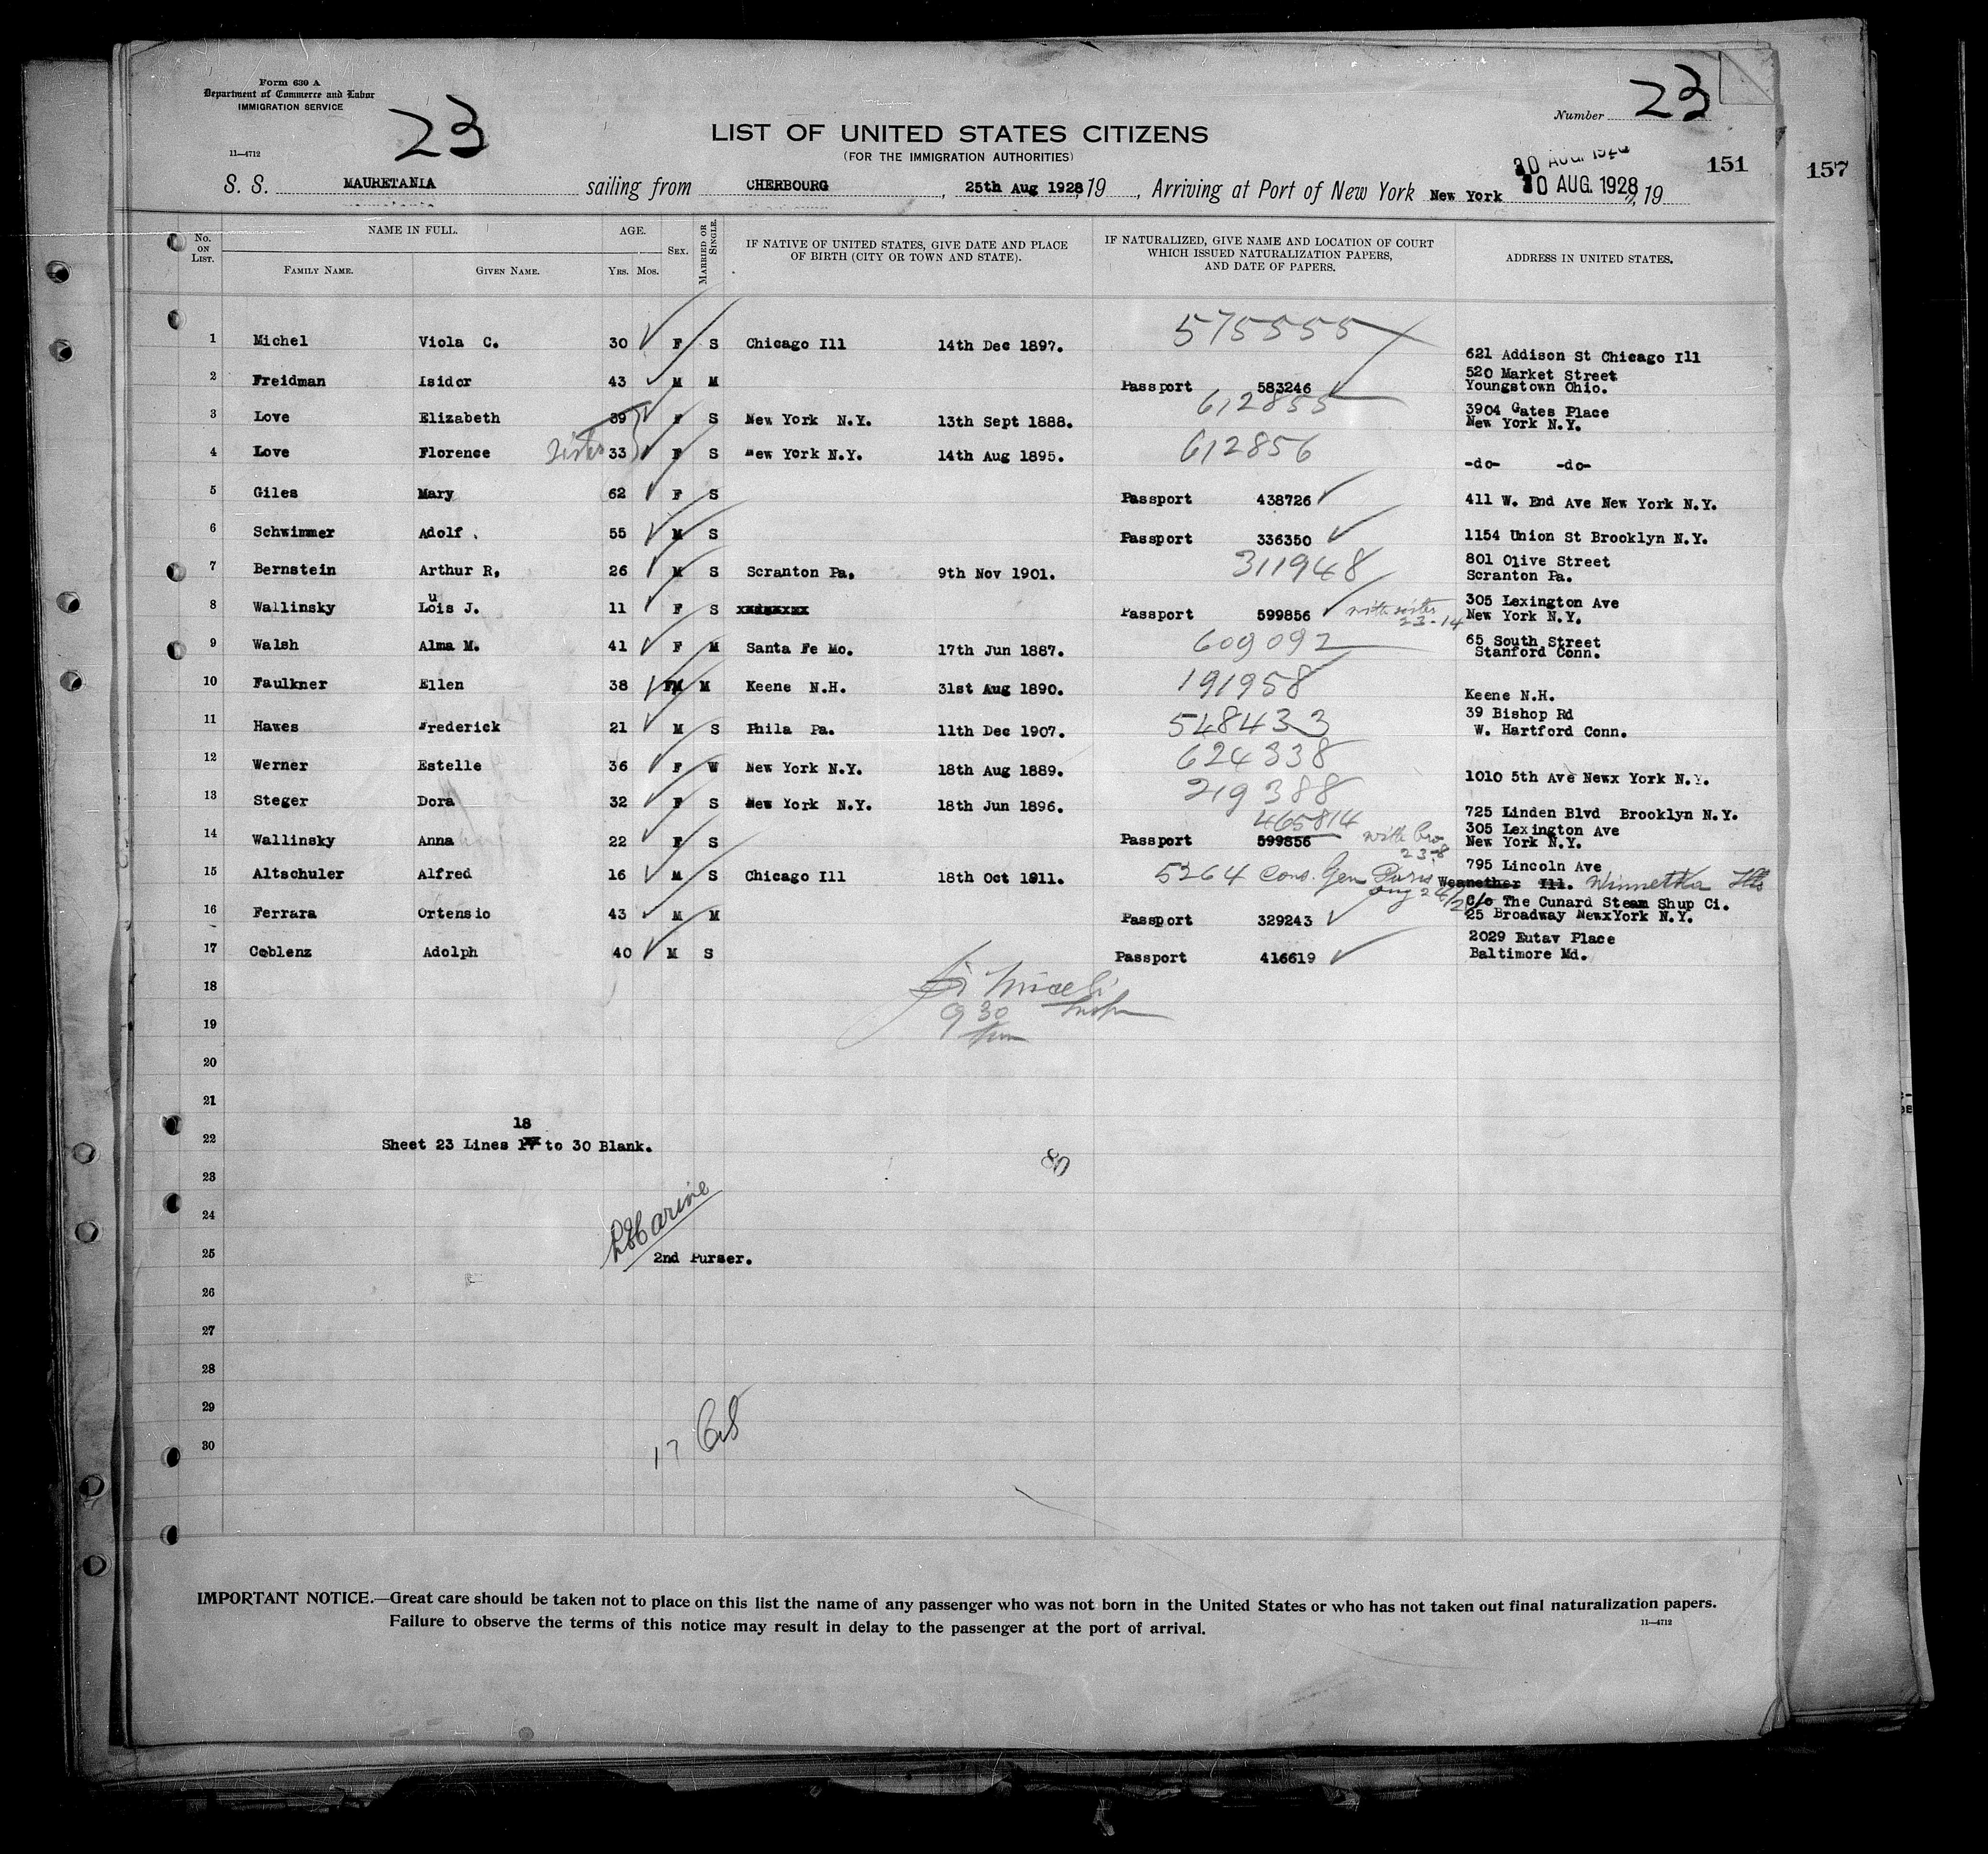 Form 630 A
Department of Commerce and Labor
IMMIGRATION SERVICE
23
Number 23
LIST OF UNITED STATES CITIZENS
(FOR THE IMMIGRATION AUTHORITIES)
11—4712
30 AUG. 1928
151
157
S. S. MAURETANIA sailing from CHERBOURG, 25th Aug 1928, 19 , Arriving at Port of New York New York 30 AUG. 1928, 19
No. ON LIST.
NAME IN FULL.
FAMILY NAME.
GIVEN NAME.
AGE.
YRS. MOS.
SEX.
MARRIED OR SINGLE.
IF NATIVE OF UNITED STATES, GIVE DATE AND PLACE OF BIRTH (CITY OR TOWN AND STATE).
IF NATURALIZED, GIVE NAME AND LOCATION OF COURT WHICH ISSUED NATURALIZATION PAPERS, AND DATE OF PAPERS.
ADDRESS IN UNITED STATES.
1 Michel Viola C. 30 F S Chicago Ill 14th Dec 1897. 575555 621 Addison St Chicago Ill
2 Freidman Isidor 43 M M Passport 583246 520 Market Street Youngstown Ohio.
3 Love Elizabeth 39 F S New York N.Y. 13th Sept 1888. 612855 3904 Gates Place New York N.Y.
4 Love Florence Sisters 33 F S New York N.Y. 14th Aug 1895. 612856 -do- -do-
5 Giles Mary 62 F S Passport 438726 411 W. End Ave New York N.Y.
6 Schwimmer Adolf . 55 M S Passport 336350 1154 Union St Brooklyn N.Y.
7 Bernstein Arthur R. 26 M S Scranton Pa. 9th Nov 1901. 311948 801 Olive Street Scranton Pa.
8 Wallinsky Louis J. 11 F S Passport 599856 with sister 23-14 305 Lexington Ave New York N.Y.
9 Walsh Alma M. 41 F M Santa Fe Mo. 17th Jun 1887. 609092 65 South Street Stanford Conn.
10 Faulkner Ellen 38 FM M Keene N.H. 31st Aug 1890. 191958 Keene N.H.
11 Hawes Frederick 21 M S Phila Pa. 11th Dec 1907. 548433 39 Bishop Rd W. Hartford Conn.
12 Werner Estelle 36 F W New York N.Y. 18th Aug 1889. 624338 1010 5th Ave Newx York N.Y.
13 Steger Dora 32 F S New York N.Y. 18th Jun 1896. 219388 725 Linden Blvd Brooklyn N.Y.
14 Wallinsky Anna 22 F S Passport 599856 465814 with bro 23-8 305 Lexington Ave New York N.Y.
15 Altschuler Alfred 16 M S Chicago Ill 18th Oct 1911. 5264 Cons. Gen Paris Aug 24/28 795 Lincoln Ave Ill. Winnetka Ills
16 Ferrara Ortensio 43 M M Passport 329243 C/o The Cunard Steam Shup Ci. 25 Broadway NewxYork N.Y.
17 Coblenz Adolph 40 M S Passport 416619 2029 Eutav Place Baltimore Md.
18
9 30
19
20
21
18
22 Sheet 23 Lines 17 to 30 Blank.
80
23
24
25 2nd Purser.
26
27
28
29
30
17
IMPORTANT NOTICE.—Great care should be taken not to place on this list the name of any passenger who was not born in the United States or who has not taken out final naturalization papers.
Failure to observe the terms of this notice may result in delay to the passenger at the port of arrival.
11—4712